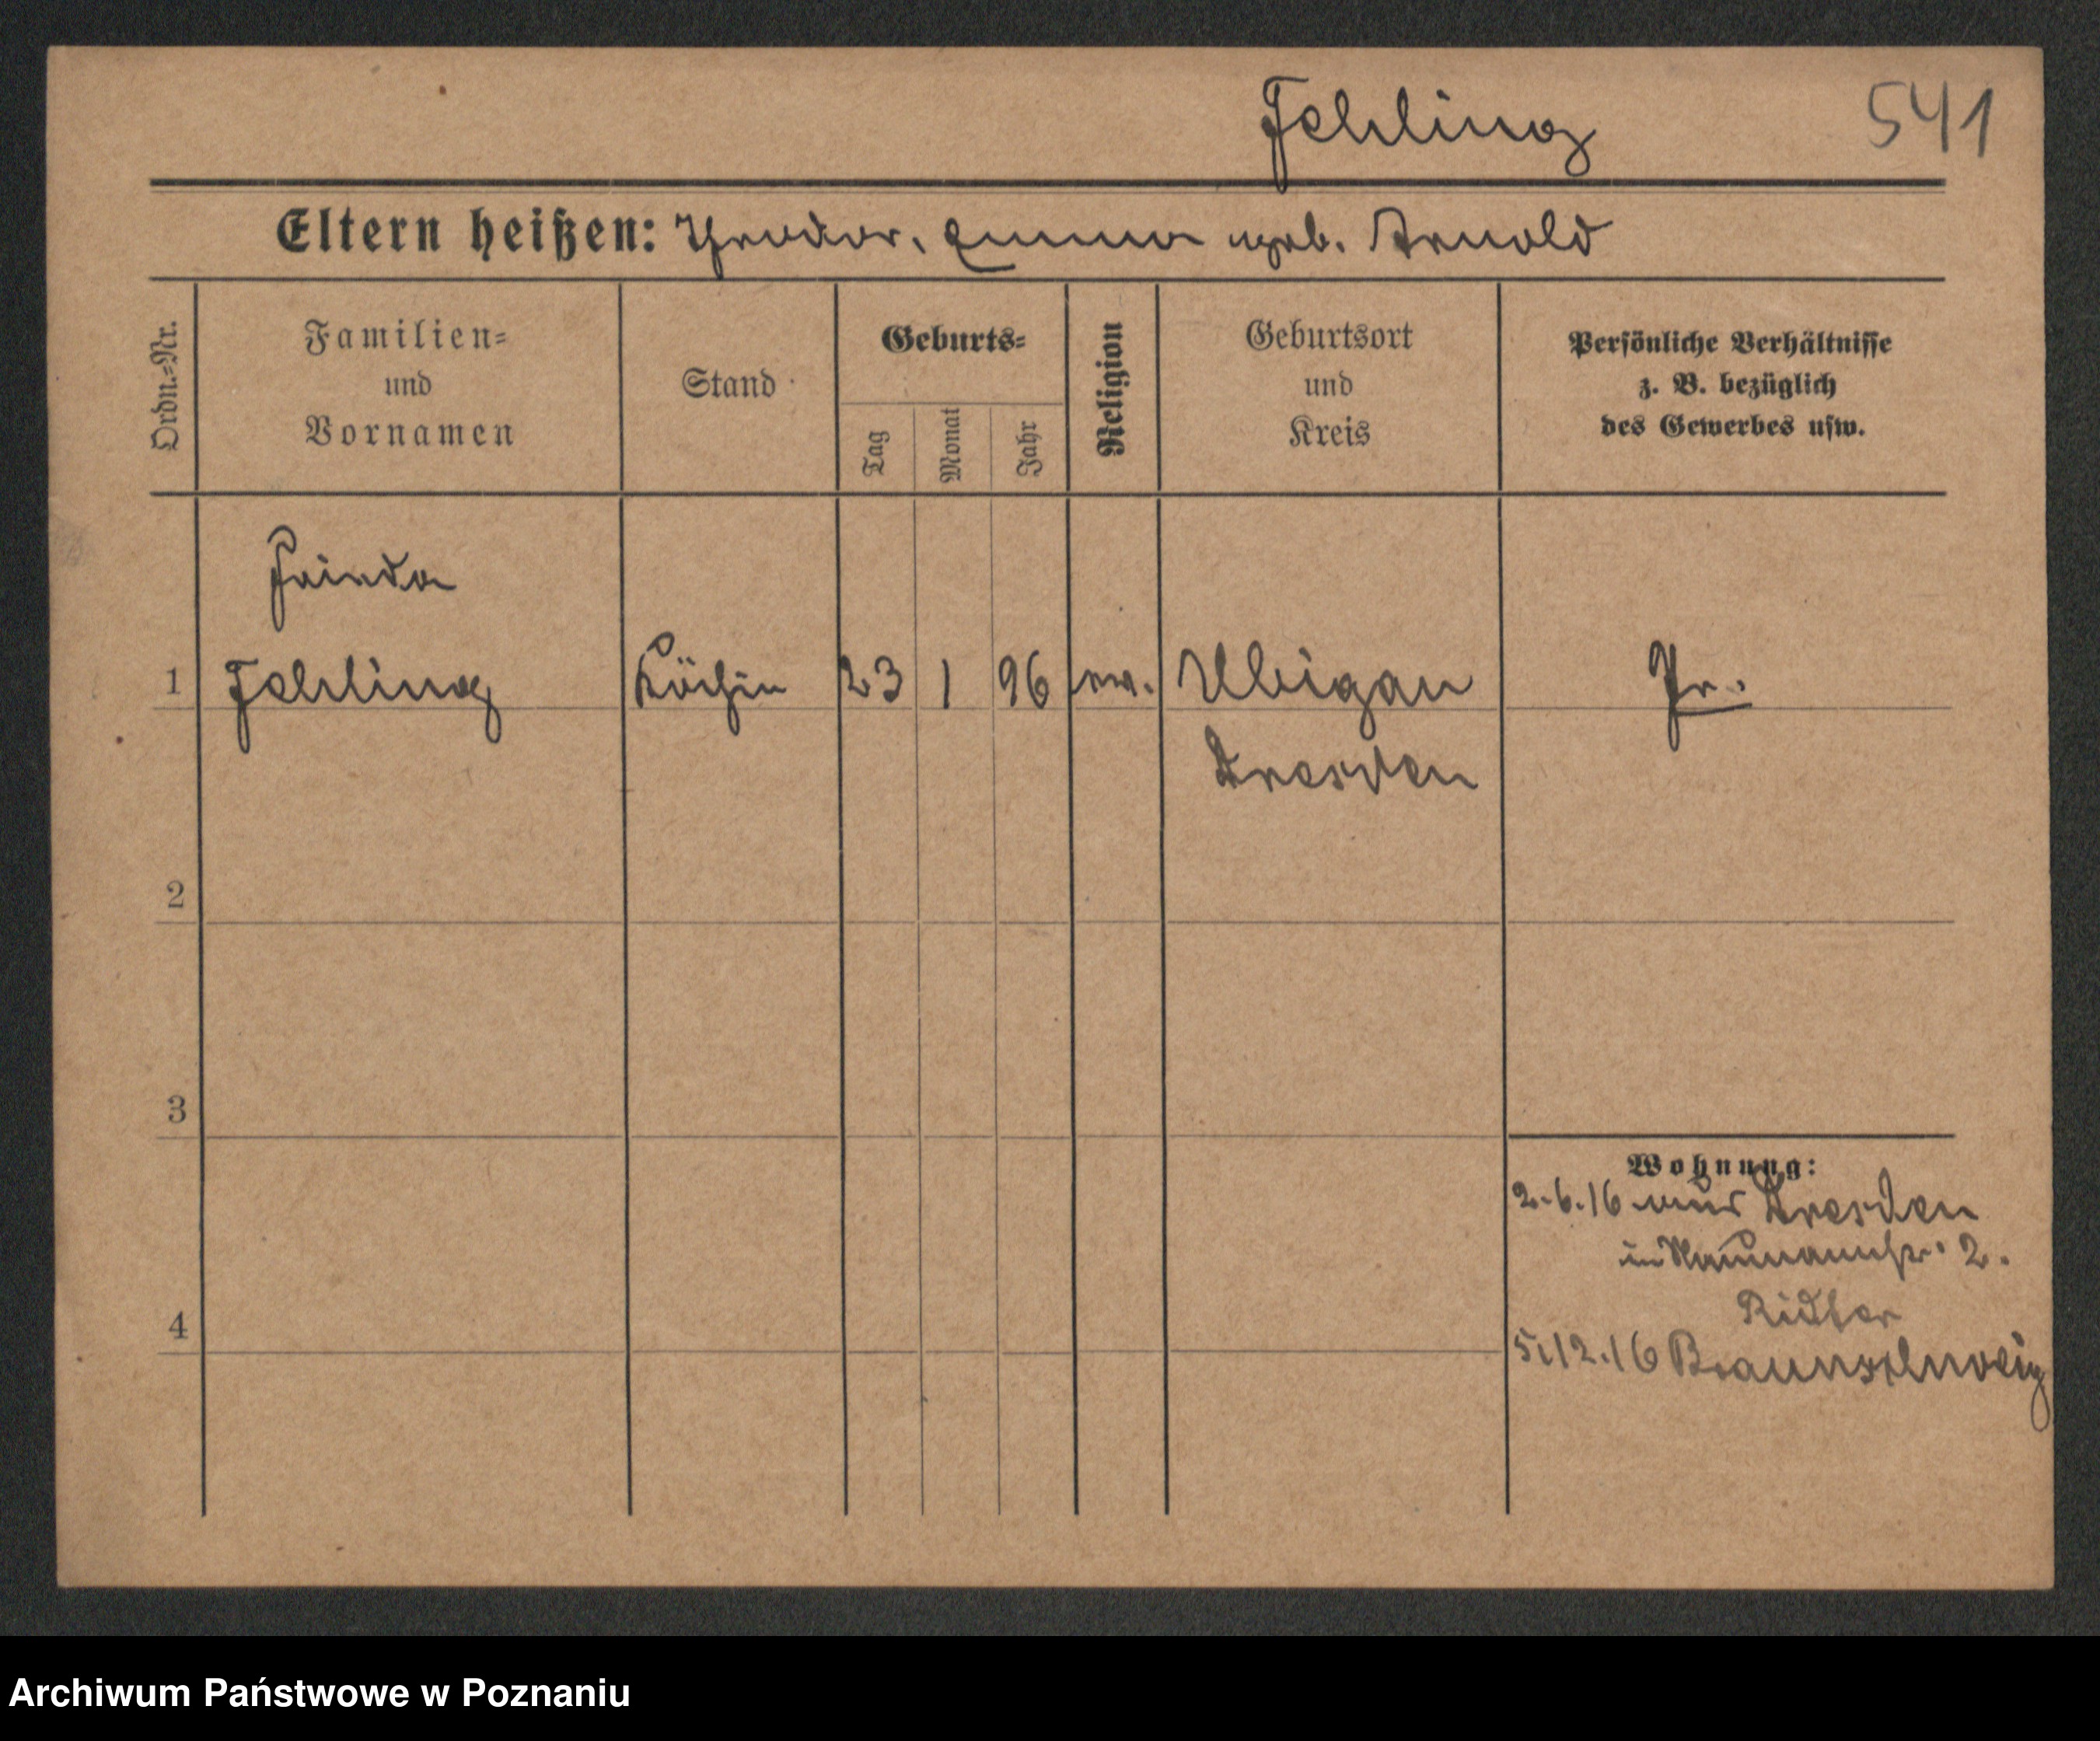 Fehling 541
Eltern heißen: Theodor, Emma geb. Arnold
Ordn.=Nr.
Familien=
und
Vornamen
Stand
Geburts=
Tag
Monat
Jahr
Religion
Geburtsort
und
Kreis
Persönliche Verhältnisse
z. B. bezüglich
des Gewerbes usw.
Frieda
1 Fehling Köchin 23 1 96 ev. Übigau Pr.
Dresden
2
3
Wohnung:
2.6.16 aus Dresden
in Naumannstr. 2.
4
5.12.16 Braunschweig
Archiwum Państwowe w Poznaniu